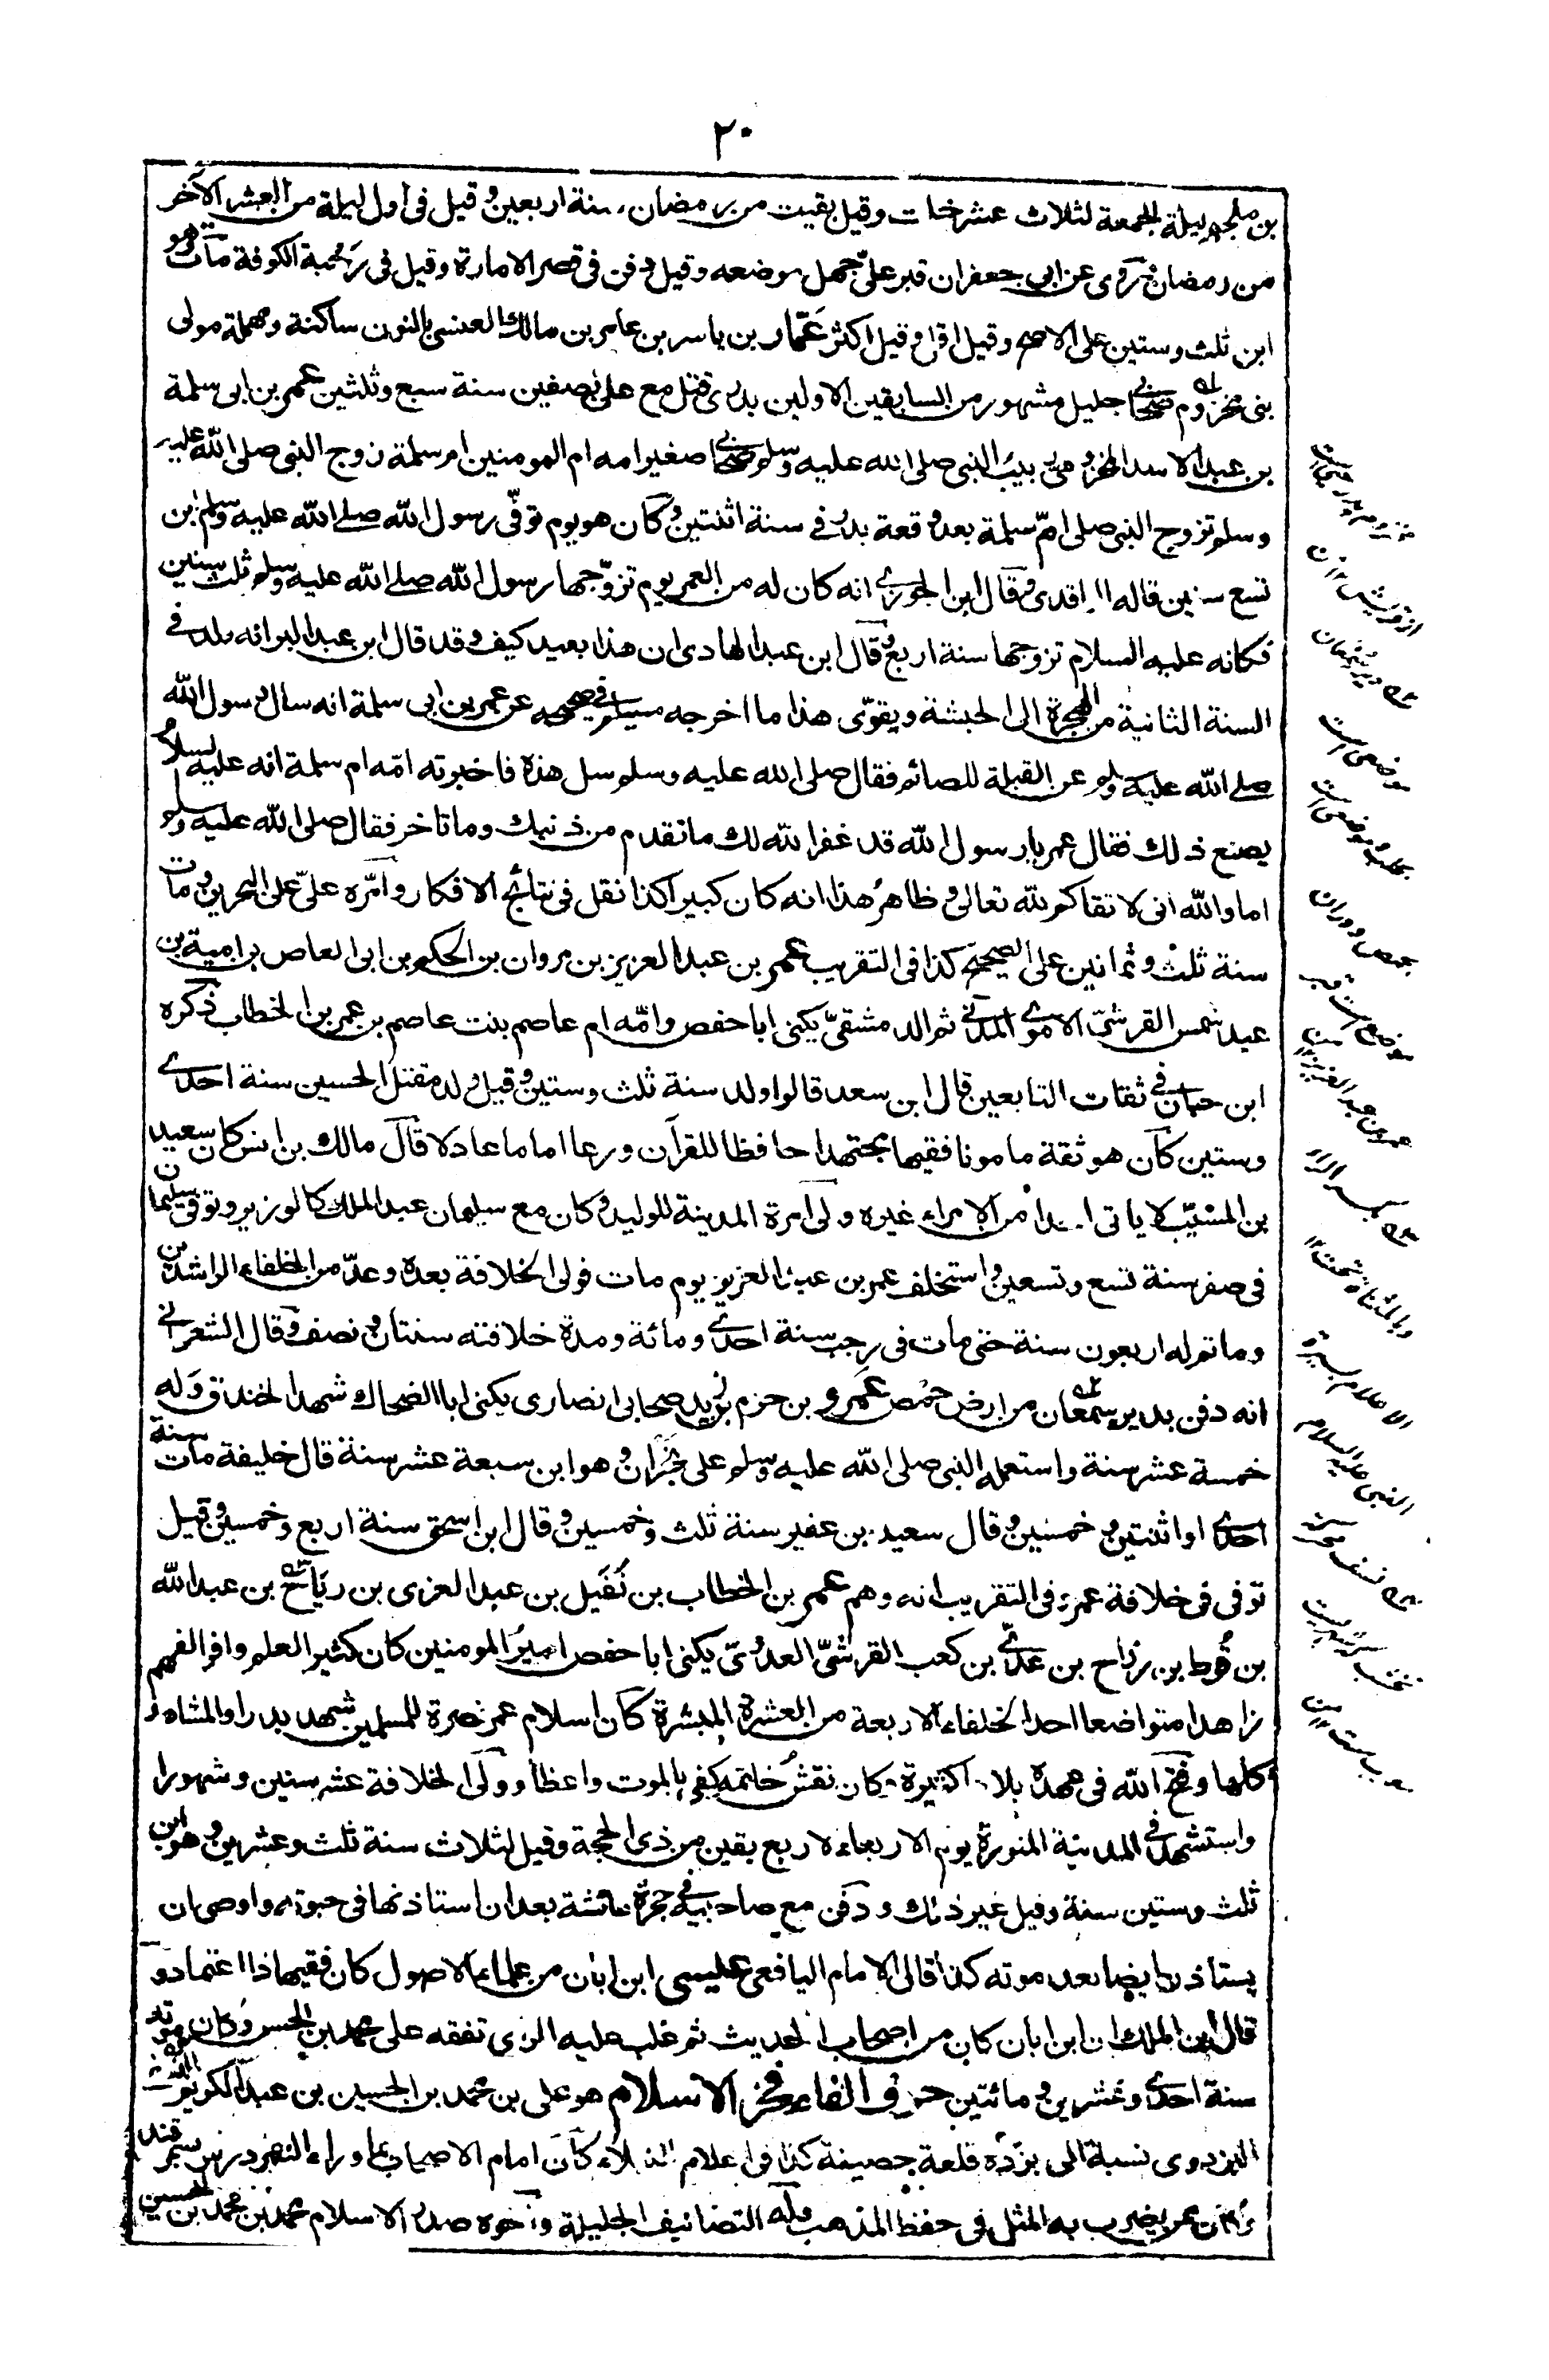 ٢٠
بن ملجم ليلة الجمعة لثلاث عشر خلت وقيل بقيت من رمضان سنة اربعين وقيل فى اول ليلة من العشر الآخر
من رمضان وروى عن ابى جعفر ان قبر على جهل موضعه وقيل دفن فى قصر الامارة وقيل فى رحبة الكوفة مات وهو
ابن ثلث وستين على الاصح وقيل اقل وقيل اكثر عمّار بن ياسر بن عامر بن مالك العنسى بالنون ساكنة ومهملة مولى
بنى مخزوم صحابى جليل مشهور من السابقين الاولين بدرى قتل مع على بصفين سنة سبع وثلثين عمر بن ابى سلمة
بن عبد الاسد المخزومى ربيب النبى صلى الله عليه وسلم صحابى صغير امه ام المومنين ام سلمة زوج النبى صلى الله عليه
وسلم تزوج النبى صلى امّ سلمة بعد وقعة بدر فى سنة اثنتين وكان هو يوم توفّى رسول الله صلى الله عليه وسلم ابن
تسع سنين قاله الواقدى وقال ابن الجوزى انه كان له من العمر يوم تزوّجها رسول الله صلى الله عليه وسلم ثلث سنين
فكانه عليه السلام تزوجها سنة اربع وقال ابن عبد الهادى ان هذا بعيد كيف وقد قال ابن عبد البر انه ولد فى
السنة الثانية من الهجرة الى الحبشة ويقوّى هذا ما اخرجه مسلم فى صحيحه عن عمر بن ابى سلمة انه سال رسول الله
صلى الله عليه وسلم عن القبلة للصائم فقال صلى الله عليه وسلم سل هذه فاخبرته امّه ام سلمة انه عليه السلام
يصنع ذلك فقال عمر يا رسول الله قد غفر الله لك ما تقدم من ذنبك وما تاخر فقال صلى الله عليه وسلم
اما والله انى لاتقاكم لله تعالى وظاهر هذا انه كان كبيرا كذا نقل فى نتائج الافكار وامّره علىّ على البحرين ومات
سنة ثلث وثمانين على الصحيح كذا فى التقريب عمر بن عبد العزيز بن مروان بن الحكم بن ابى العاص بن امية بن
عبد شمس القرشىّ الاموى المدنى ثم الدمشقىّ يكنى ابا حفص وامّه ام عاصم بنت عاصم بن عمر بن الخطاب ذكره
ابن حبان فى ثقات التابعين قال ابن سعد قالوا ولد سنة ثلث وستين وقيل ولد مقتل الحسين سنة احدى
وستين كان هو ثقة مامونا فقيها مجتهدا حافظا للقرآن ورعا اماما عادلا قال مالك بن انس كان سعيد
بن المسيّب لا ياتى احدا من الامراء غيره ولى امرة المدينة للوليد وكان مع سليمان عبد الملك كالوزير وتوفى سليمان
فى صفر سنة تسع وتسعين واستخلف عمر بن عبد العزيز يوم مات فولى الخلافة بعده وعدّ من الخلفاء الراشدين
وما تم له اربعون سنة حتى مات فى رجب سنة احدى ومائة ومدة خلافته سنتان ونصف وقال الشعرانى
انه دفن بدير سمعان من ارض حمص عمرو بن حزم بن زيد صحابى انصارى يكنى ابا الضحاك شهد الخندق وله
خمسة عشر سنة واستعمله النبى صلى الله عليه وسلم على نجران وهو ابن سبعة عشر سنة قال خليفة مات سنة
احدى او اثنتين وخمسين وقال سعيد بن عفير سنة ثلث وخمسين وقال ابن اسحق سنة اربع وخمسين وقيل
توفى فى خلافة عمر وفى التقريب انه وهم عمر بن الخطاب بن نُفَيل بن عبد العزى بن رياح بن عبد الله
بن قُرط بن رزاح بن عدىّ بن كعب القرشىّ العدوىّ يكنى ابا حفص اميرُ المومنين كان كثير العلم وافر الفهم
زاهدا متواضعا احد الخلفاء الاربعة من العشرة المبشرة كان اسلام عمر نصرة للمسلمين شهد بدرا والمشاهد
كلها وفتح الله فى عهده بلادا كثيرة وكان نقش خاتمه كفى بالموت واعظا وولى الخلافة عشر سنين وشهورا
واستشهد فى المدينة المنورة يوم الاربعاء لاربع بقين من ذى الحجة وقيل لثلاث سنة ثلث وعشرين وهو ابن
ثلث وستين سنة وقيل غير ذلك ودفن مع صاحبيه فى حجرة عائشة بعد ان استاذنها فى حيوته واوصى ان
يستاذن ايضا بعد موته كذا قال الامام اليافعى عيسى ابن ابان من علماء الاصول كان فقيها ذا اعتماد و
قال ابن الملك ان ابن ابان كان من اصحاب الحديث ثم غلب عليه الرى تفقه على محمد بن الحسن وكان موته
سنة احدى وعشرين ومائتين حرف الفاء فخر الاسلام هو على بن محمد بن الحسين بن عبد الكريم
البزدوى نسبة الى بزده قلعة حصينة كذا فى اعلام النبلاء كان امام الاصحاب بما وراء النهر درس بسمرقند
وكان ممن يضرب به المثل فى حفظ المذهب وله التصانيف الجليلة واخوه صدر الاسلام محمد بن محمد بن الحسين